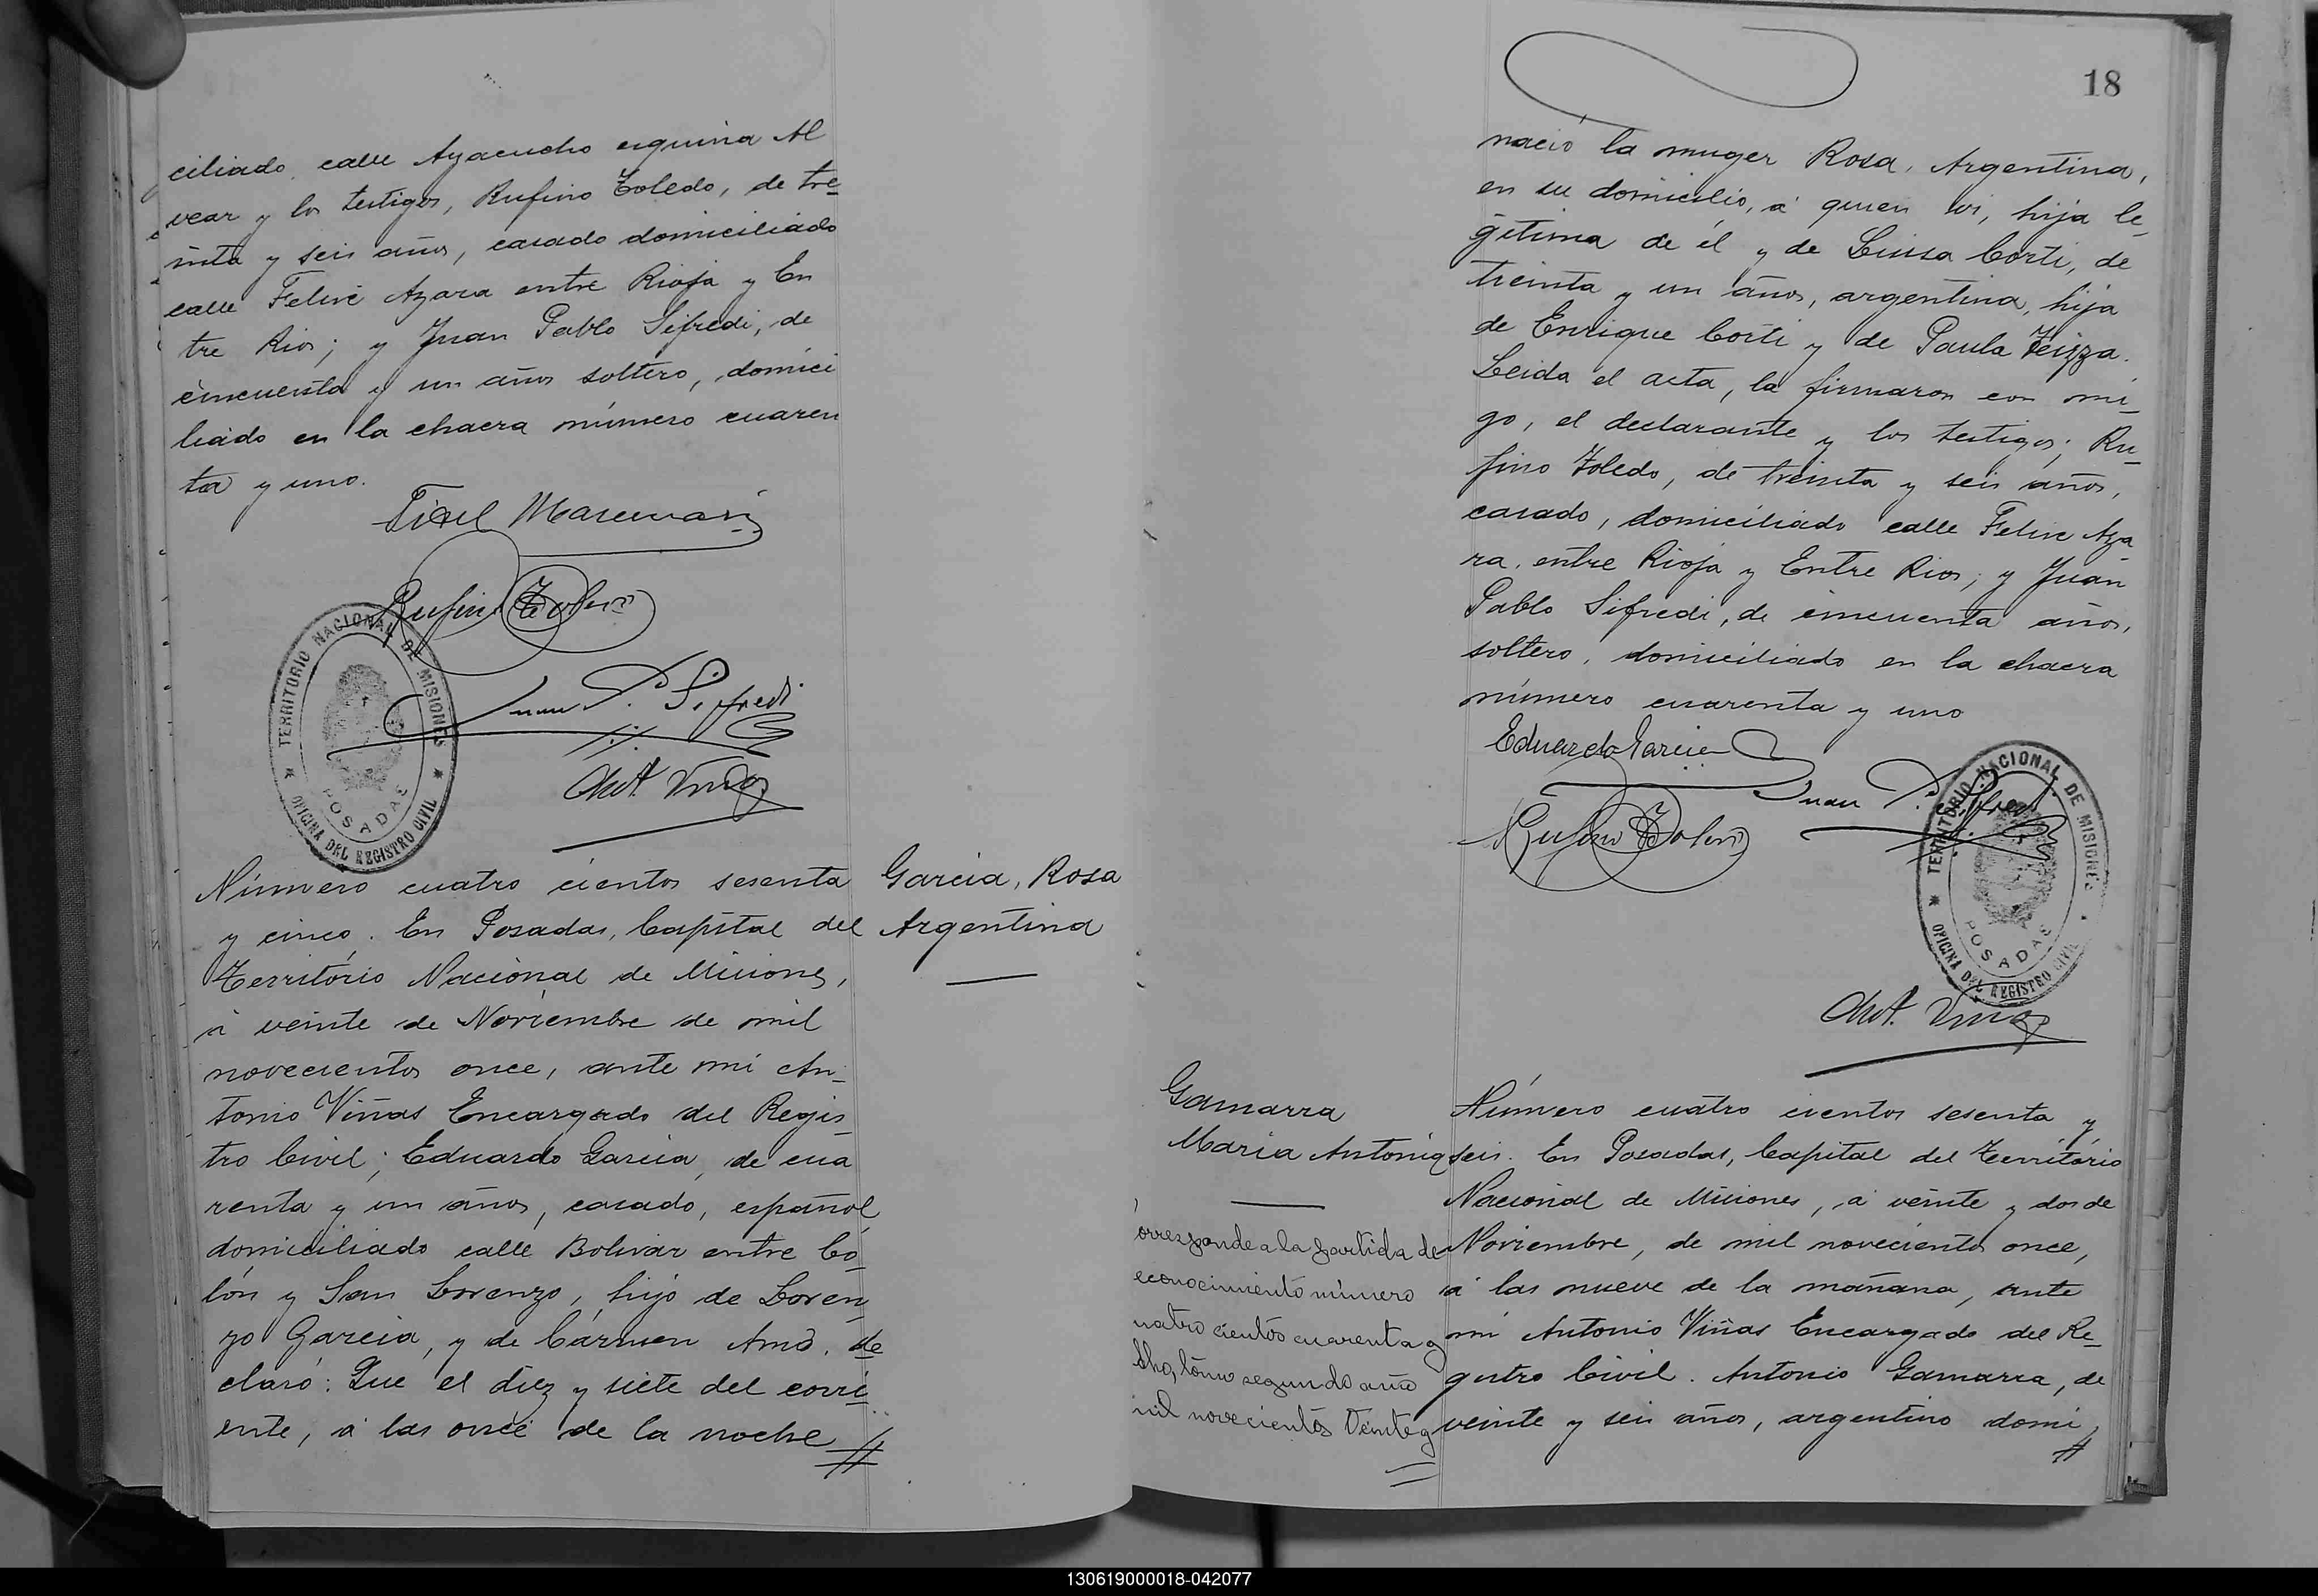 ciliado, calle Ayacucho esquina Al
vear y los testigos, Rufino Toledo, de tre
inta y seis años, casado domiciliado
calle Felix Azara entre Rioja y En
tre Rios; y Juan Pablo Sifredi, de
cincuenta y un años soltero, domici
liado en la chacra número cuaren
ta y uno.
Rufino Toledo
Juan P. Sifredi
Ant. Viñas
TERRITORIO NACIONAL DE MISIONES
POSADAS
OFICINA DEL REGISTRO CIVIL
Garcia, Rosa
Argentina
Número cuatro cientos sesenta
y cinco. En Posadas, Capital del
Territorio Nacional de Misiones,
á veinte de Noviembre de mil
novecientos once, ante mi An-
tonio Viñas Encargado del Regis-
tro Civil; Eduardo Garcia, de cua
renta y un años, casado, español,
domiciliado calle Bolivar entre Co-
lón y San Lorenzo, hijo de Loren
zo Garcia, y de Cármen Amó, de
claró: Que el diez y siete del corri-
ente, á las once de la noche //
18
nació la muger Rosa, Argentina,
en su domicilio, á quien vi, hija le-
gitima de él y de Luisa Corti, de
treinta y un años, argentina, hija
de Enrique Corti y de Paula
Leida el acta, la firmaron con mi-
go, el declarante y los testigos; Ru-
fino Toledo, de treinta y seis años,
casado, domiciliado calle Felix Aza-
ra, entre Rioja y Entre Rios; y Juan
Pablo Sifredi, de cincuenta años,
soltero, domiciliado en la chacra
número cuarenta y uno
Eduardo Garcia
Juan P. Sifredi
Rufino Toledo
TERRITORIO NACIONAL DE MISIONES
POSADAS
OFICINA DEL REGISTRO CIVIL
Ant. Viñas
Gamarra
Maria Antonia
orresponde a la partida de
econocimiento número
uatro cientos cuarenta y
cho, tomo segundo año
mil novecientos veinte y
Número cuatro cientos sesenta y
seis. En Posadas, Capital del Territorio
Nacional de Misiones, á veinte y dos de
Noviembre, de mil novecientos once,
á las nueve de la mañana, ante
mi Antonio Viñas Encargado del Re-
gistro Civil. Antonio Gamarra, de
veinte y seis años, argentino domi
//
130619000018-042077